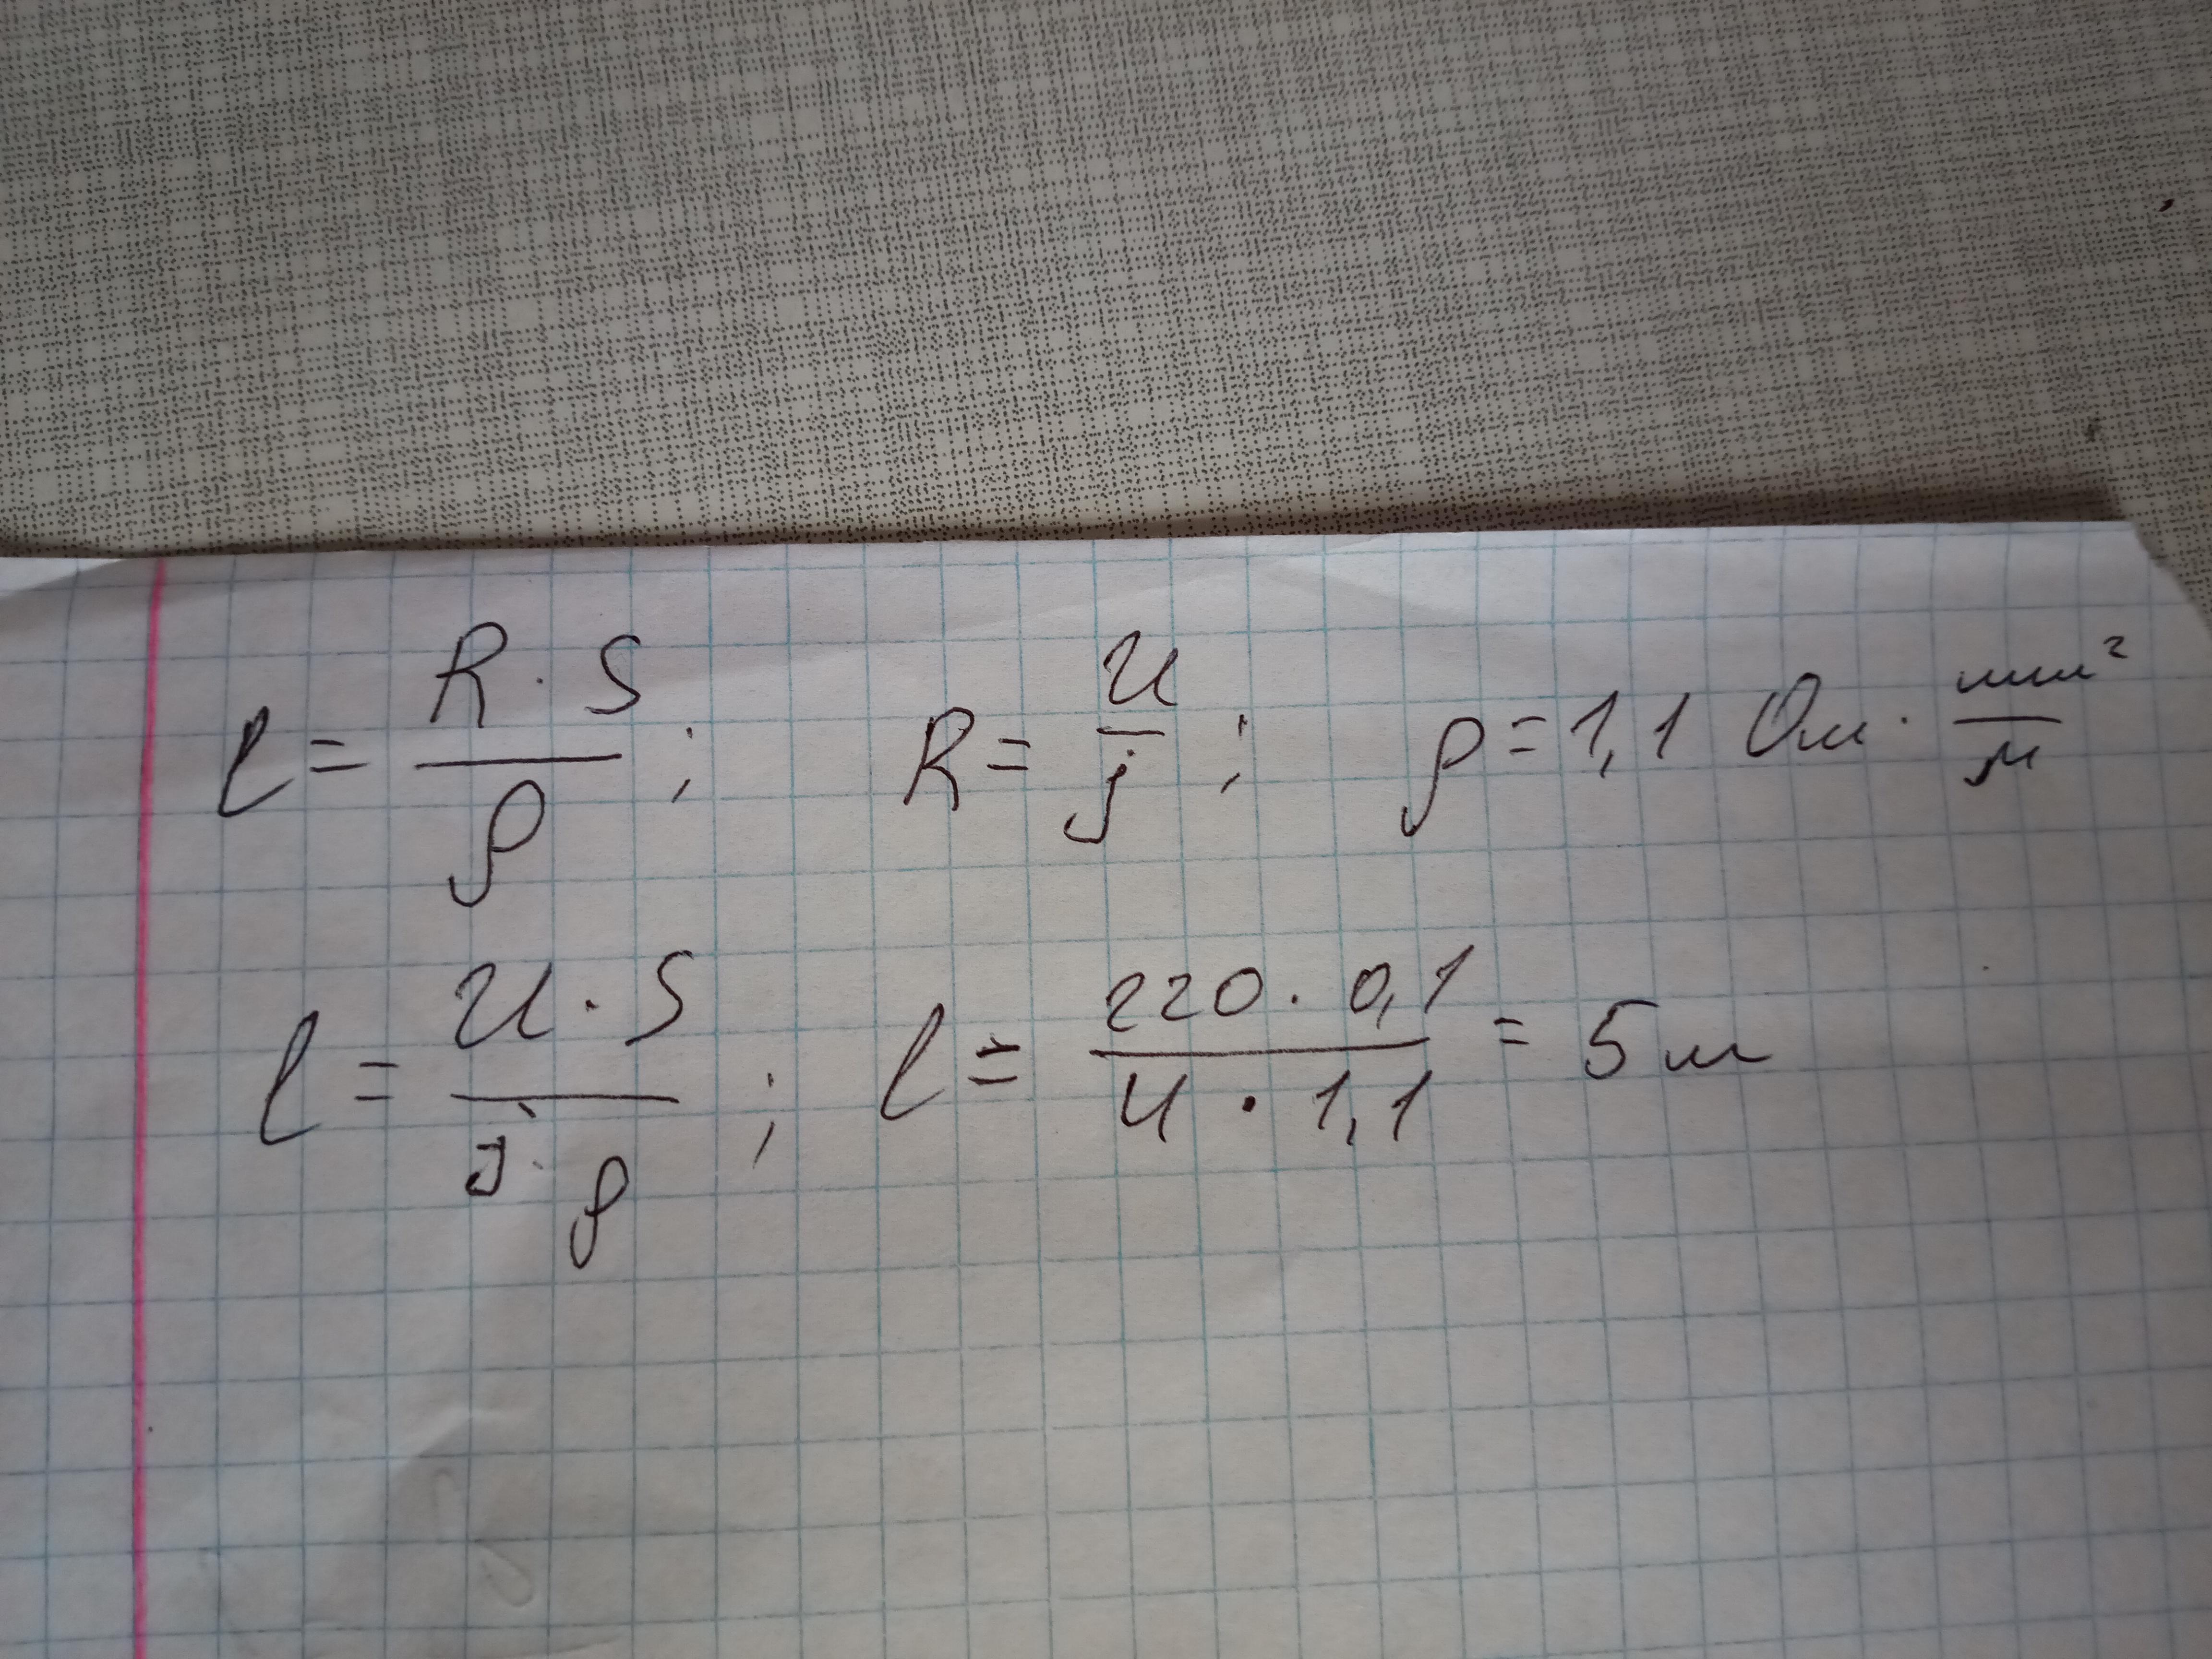 l = R · S / ρ ; R = U / j ; ρ = 1,1 Ом · мм² / м
l = U · S / j · ρ ; l = 220 · 0,1 / 4 · 1,1 = 5 м